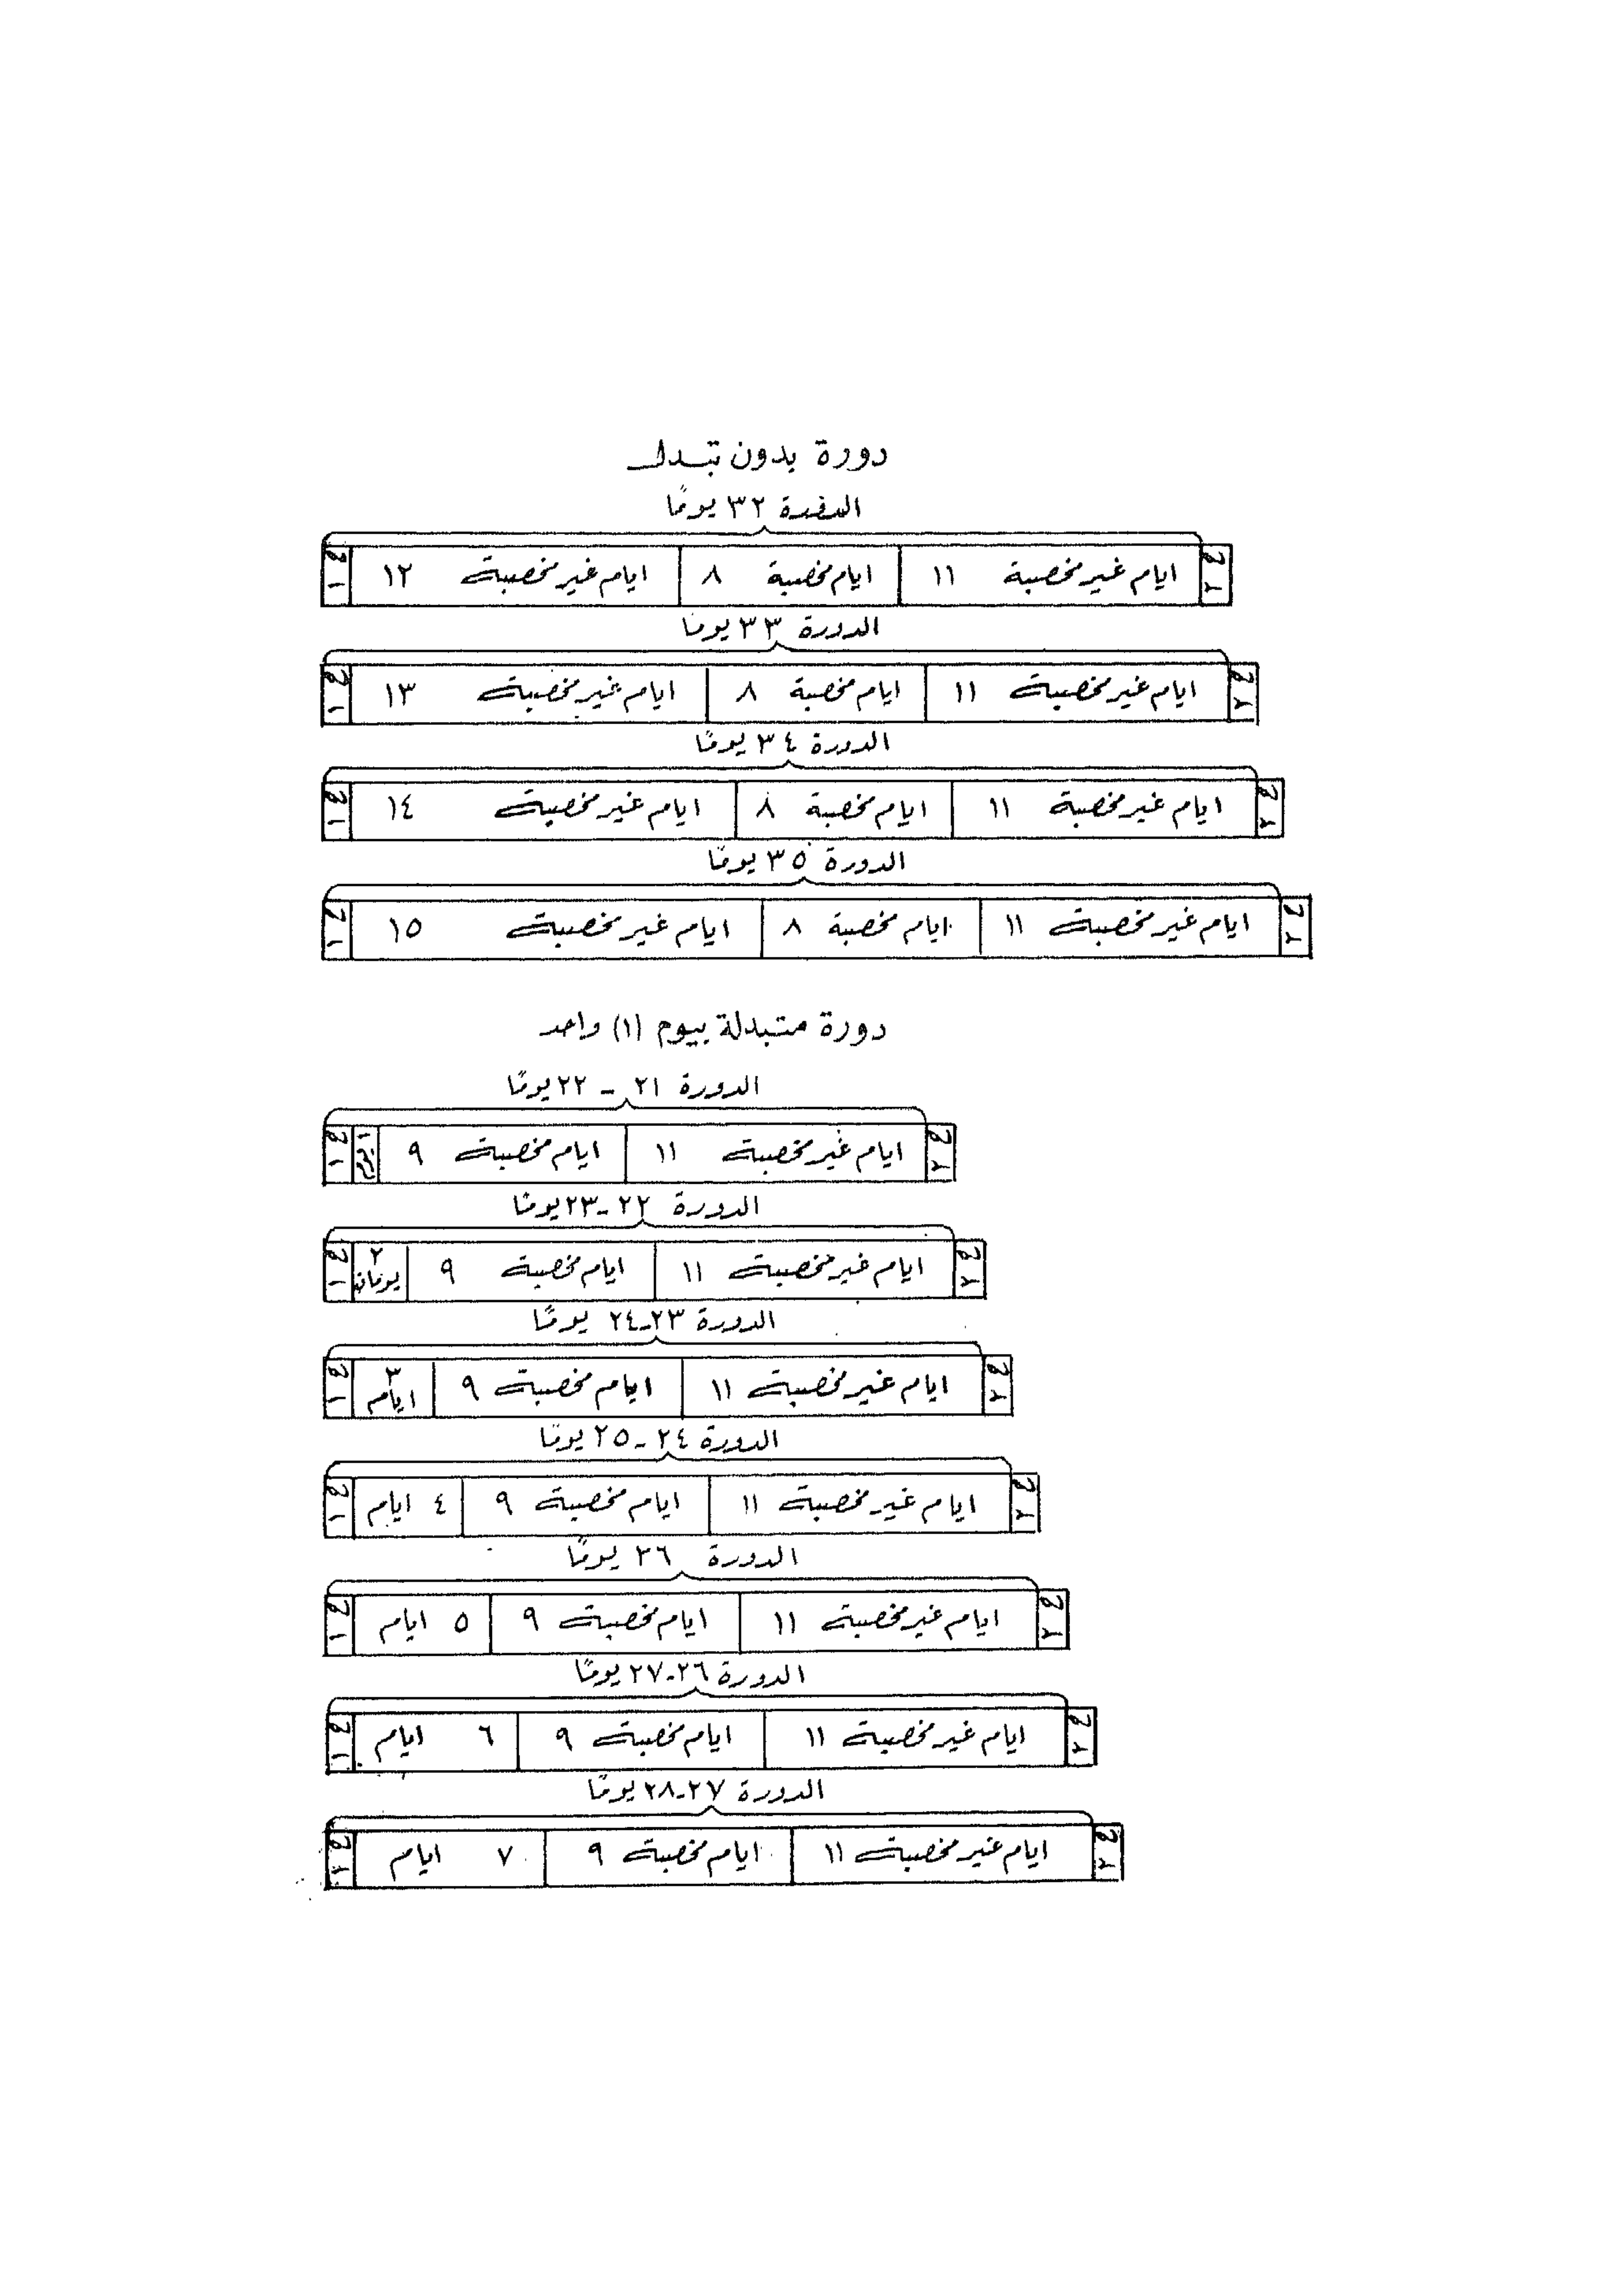 دورة بدون تبدل
الدورة ٣٢ يومًا
ح ٢ ايام غير مخصبة ١١ ايام مخصبة ٨ ايام غير مخصبة ١٢ ح ١
الدورة ٣٣ يومًا
ح ٢ ايام غير مخصبة ١١ ايام مخصبة ٨ ايام غير مخصبة ١٣ ح ١
الدورة ٣٤ يومًا
ح ٢ ايام غير مخصبة ١١ ايام مخصبة ٨ ايام غير مخصبة ١٤ ح ١
الدورة ٣٥ يومًا
ح ٢ ايام غير مخصبة ١١ ايام مخصبة ٨ ايام غير مخصبة ١٥ ح ١
دورة متبدلة بيوم (١) واحد
الدورة ٢١ - ٢٢ يومًا
ح ٢ ايام غير مخصبة ١١ ايام مخصبة ٩ ١ يوم ح ١
الدورة ٢٢-٢٣ يومًا
ح ٢ ايام غير مخصبة ١١ ايام مخصبة ٩ ٢ يومان ح ١
الدورة ٢٣-٢٤ يومًا
ح ٢ ايام غير مخصبة ١١ ايام مخصبة ٩ ٣ ايام ح ١
الدورة ٢٤-٢٥ يومًا
ح ٢ ايام غير مخصبة ١١ ايام مخصبة ٩ ٤ ايام ح ١
الدورة ٢٦ يومًا
ح ٢ ايام غير مخصبة ١١ ايام مخصبة ٩ ٥ ايام ح ١
الدورة ٢٦-٢٧ يومًا
ح ٢ ايام غير مخصبة ١١ ايام مخصبة ٩ ٦ ايام ح ١
الدورة ٢٧-٢٨ يومًا
ح ٢ ايام غير مخصبة ١١ ايام مخصبة ٩ ٧ ايام ح ١